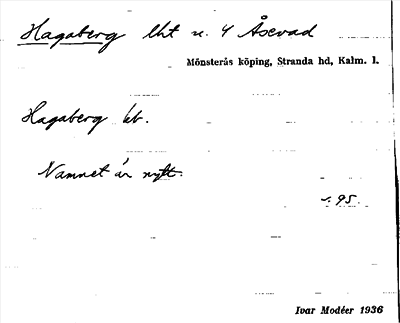 Hagaberg lht u. 4 Åsevad
Mönsterås köping, Stranda hd, Kalm. l.
Hagaberg bb.
Namnet är nytt.
s. 95.
Ivar Modéer 1936